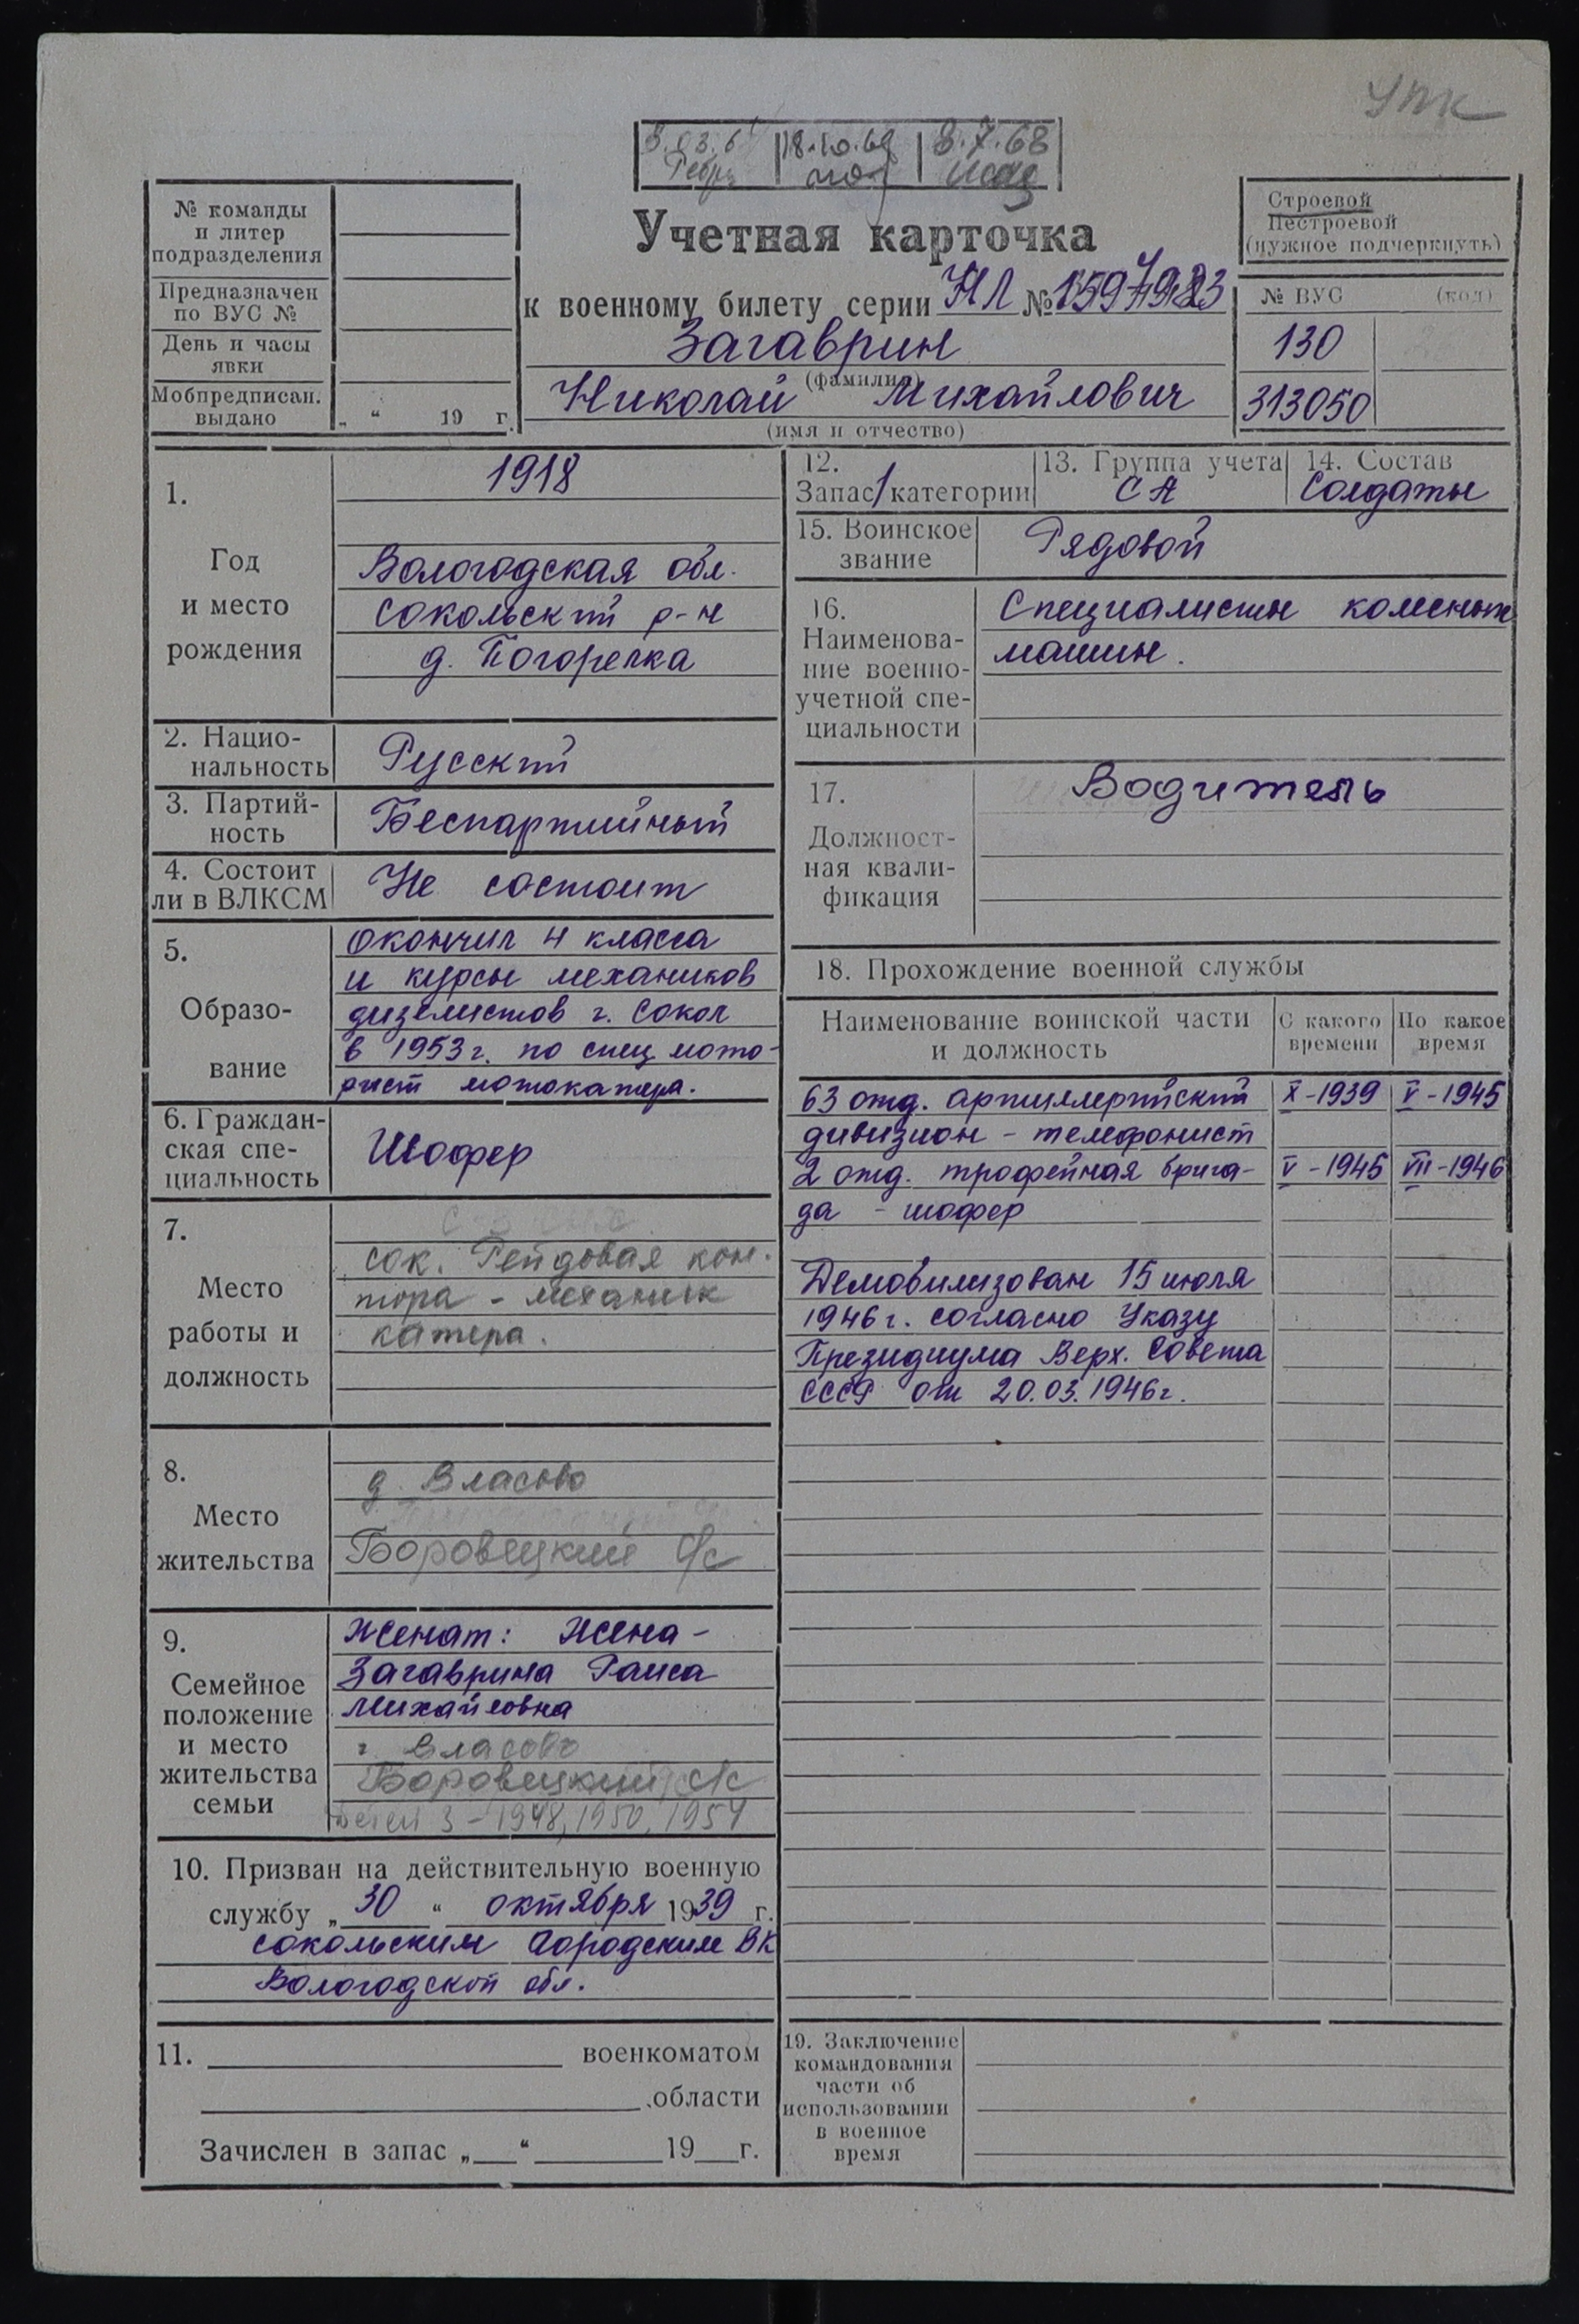 УПК
18.10.69
8.7.68
№ команды
и литер
подразделения
Предназначен
по ВУС №
День и часы
явки
Мобпредписан.
выдано
„ “ 19 г.
Учетная карточка
к военному билету серии НЛ №
Загаврин
(фамилия)
Николай Михайлович
(имя и отчество)
Строевой
Нестроевой
(нужное подчеркнуть)
№ ВУС (код)
130
313050
1.
Год
и место
рождения
1918
Вологодская обл.
Сокольский р-н
д. Погорелка
2. Нацио-
нальность
Русский
3. Партий-
ность
Беспартийный
4. Состоит
ли в ВЛКСМ
Не состоит
5.
Образо-
вание
окончил 4 класса
и курсы механиков
дизелистов г. Сокол
в 1953 г. по спец мото-
рист мотокатера.
6. Граждан-
ская спе-
циальность
Шофер
7.
Место
работы и
должность
сок. Рейдовая кон-
тора - механик
катера.
8.
Место
жительства
д. Власово
Боровецкий с/с
9.
Семейное
положение
и место
жительства
семьи
Женат: Жена -
Загаврина Раиса
Михайловна
Власово
Боровецкий с/с
Детей 3 - 1948, 1950, 1954
10. Призван на действительную военную
службу „30“ октября 1939 г.
Сокольским Городским ВК
Вологодской обл.
11. военкоматом
области
Зачислен в запас „ “ 19 г.
12.
Запас 1 категории
13. Группа учета
СА
14. Состав
Солдаты
15. Воинское
звание
Рядовой
16.
Наименова-
ние военно-
учетной спе-
циальности
Специалисты колесных
машин.
17.
Должност-
ная квали-
фикация
Водитель
18. Прохождение военной службы
Наименование воинской части
и должность
С какого
времени
По какое
время
63 отд. артиллерийский X-1939 V-1945
дивизион - телефонист
2 отд. трофейная брига- V-1945 VII-1946
да - шофер
Демобилизован 15 июля
1946 г. согласно Указу
Президиума Верх. Совета
СССР от 20.03.1946 г.
19. Заключение
командования
части об
использовании
в военное
время